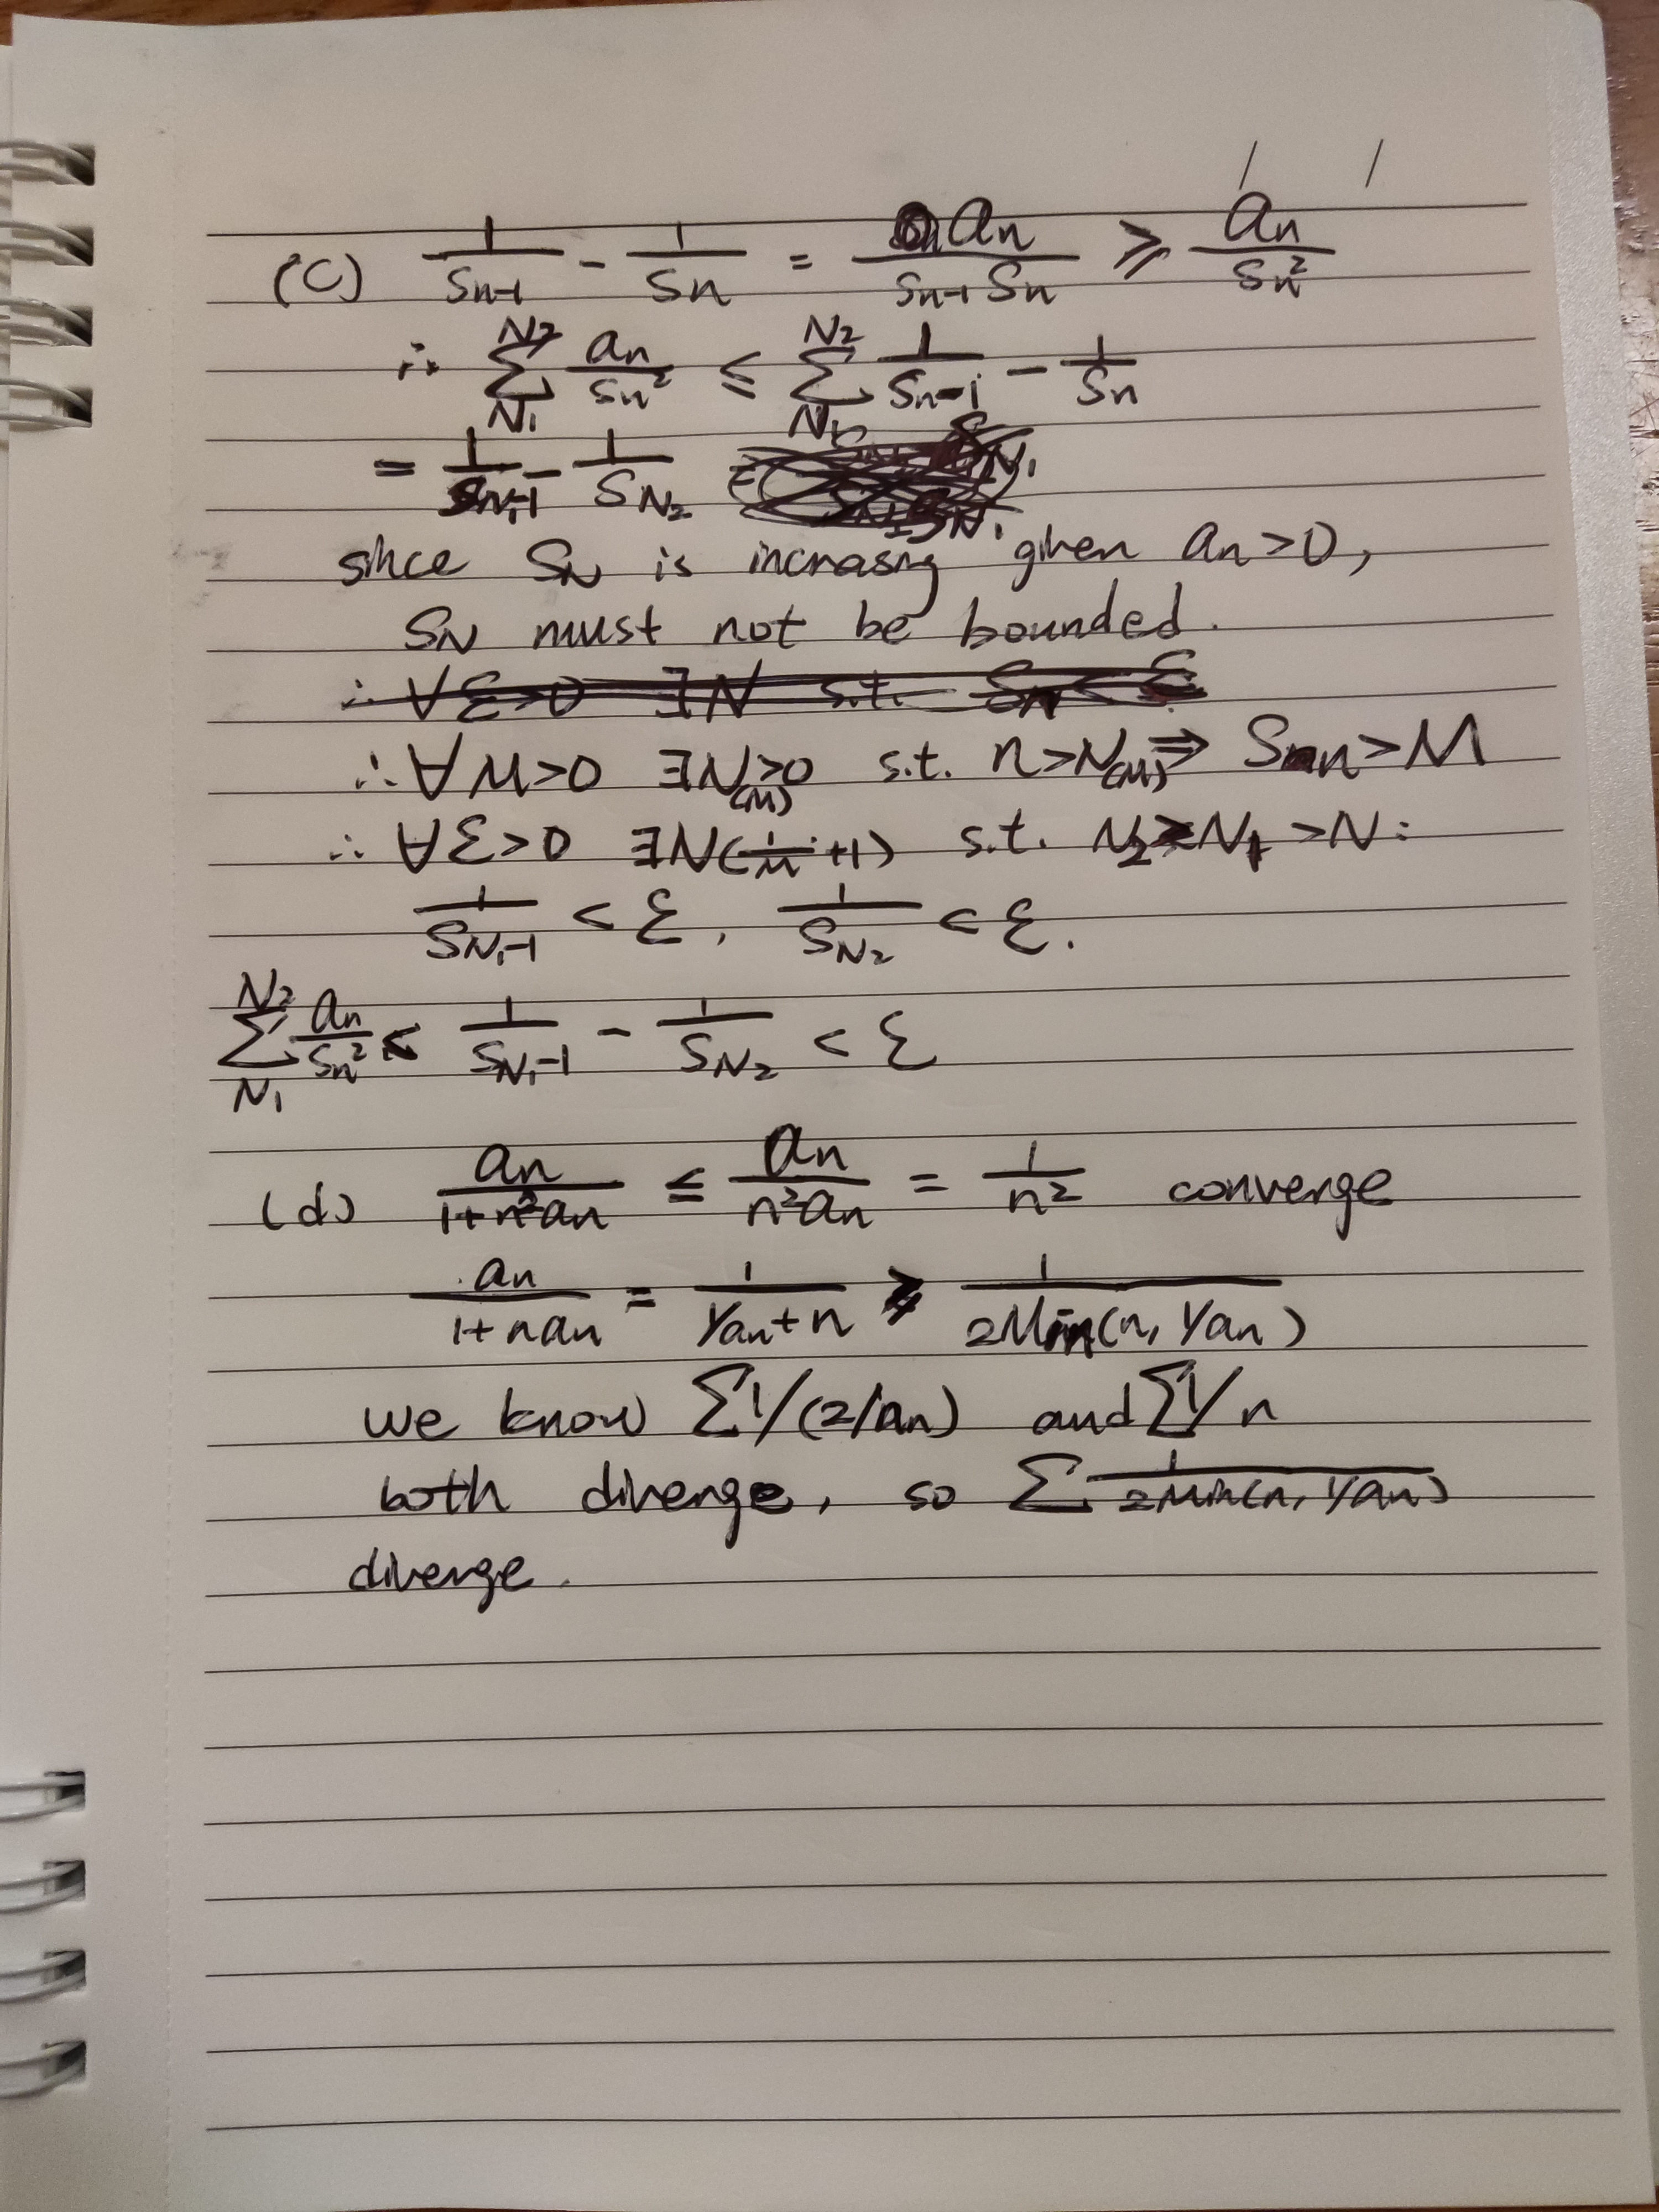 (c) 1/Sn-1 - 1/Sn = an/Sn-1 Sn ≥ an/Sn²
∴ Σ_{N1}^{N2} an/Sn² ≤ Σ_{N1}^{N2} 1/Sn-1 - 1/Sn
= 1/SN1-1 - 1/SN2
since SN is increasing given an>0,
SN must not be bounded.
∴ ∀ε>0 ∃N s.t. Sn < ε
∴ ∀M>0 ∃N(M)>0 s.t. n>N(M) ⇒ Sn>M
∴ ∀ε>0 ∃N(1/M+1) s.t. N2≥N1>N:
1/SN1-1 < ε, 1/SN2 < ε.
Σ_{N1}^{N2} an/Sn² ≤ 1/SN1-1 - 1/SN2 < ε
(d) an/1+n²an ≤ an/n²an = 1/n² converge
an/1+nan = 1/1/an+n ≥ 1/2Min(n, 1/an)
we know Σ1/(2/an) and Σ1/n
both diverge, so Σ 1/2Min(n, 1/an)
diverge.